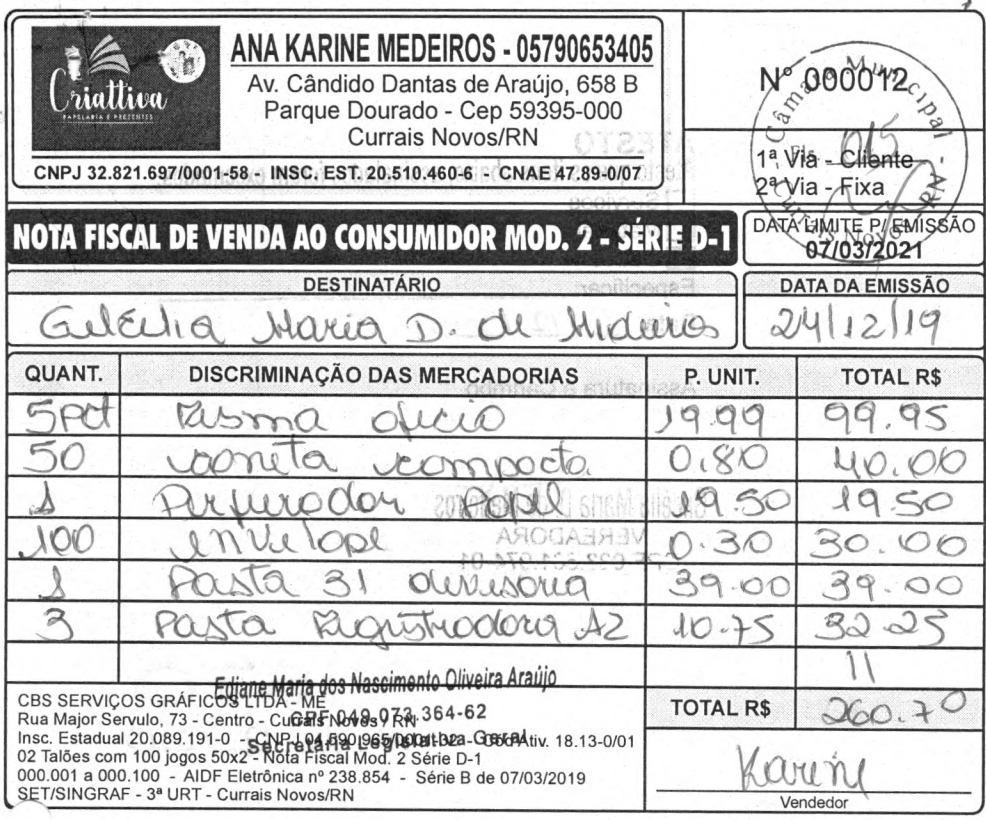 Criattiva
PAPELARIA E PRESENTES
ANA KARINE MEDEIROS - 05790653405
Av. Cândido Dantas de Araújo, 658 B
Parque Dourado - Cep 59395-000
Currais Novos/RN
CNPJ 32.821.697/0001-58 - INSC. EST. 20.510.460-6 - CNAE 47.89-0/07
Nº 000012
Câmara Municipal
Fls. 015
1ª Via - Cliente
2ª Via - Fixa
Currais Novos - RN
NOTA FISCAL DE VENDA AO CONSUMIDOR MOD. 2 - SÉRIE D-1
DATA LIMITE P/ EMISSÃO
07/03/2021
DESTINATÁRIO
DATA DA EMISSÃO
Gilcélia Maria D. de Mideiros
24/12/19
QUANT. DISCRIMINAÇÃO DAS MERCADORIAS P. UNIT. TOTAL R$
5pct Resma oficio 19.99 99.95
50 caneta compacta 0.80 40.00
1 Perfurador Papel 19.50 19.50
100 envelope 0.30 30.00
1 Pasta 31 divisoria 39.00 39.00
3 Pasta Registradora AZ 10.75 32.25
11
Edjane Maria dos Nascimento Oliveira Araújo
CPF 049.073.364-62
Secretária Legislativa Geral
CBS SERVIÇOS GRÁFICOS LTDA - ME
Rua Major Servulo, 73 - Centro - Currais Novos / RN
Insc. Estadual 20.089.191-0 - CNPJ 04.590.965/0001-02 - Cod Ativ. 18.13-0/01
02 Talões com 100 jogos 50x2 - Nota Fiscal Mod. 2 Série D-1
000.001 a 000.100 - AIDF Eletrônica nº 238.854 - Série B de 07/03/2019
SET/SINGRAF - 3ª URT - Currais Novos/RN
TOTAL R$ 260.70
Karine
Vendedor